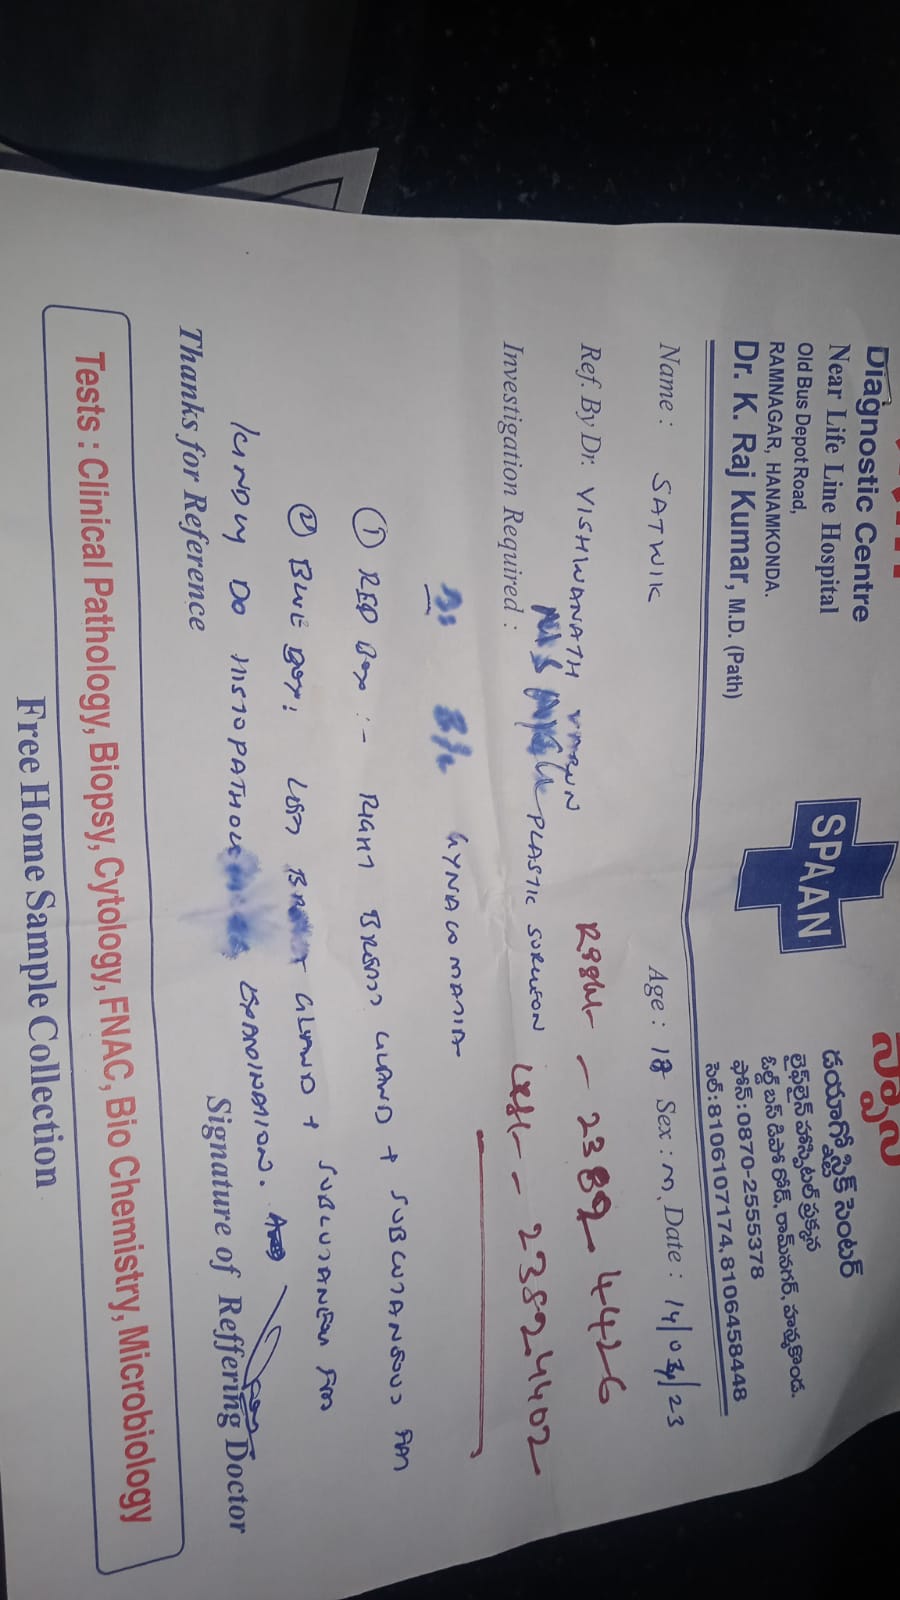 Diagnostic Centre
Near Life Line Hospital
Old Bus Depot Road,
RAMNAGAR, HANAMKONDA.
Dr. K. Raj Kumar, M.D. (Path)
SPAAN
స్పాన్
డయాగ్నోస్టిక్ సెంటర్
లైఫ్‌లైన్ హాస్పిటల్ ప్రక్కన
ఓల్డ్ బస్ డిపో రోడ్, రామ్‌నగర్, హన్మకొండ.
ఫోన్ : 0870-2555378
సెల్ : 8106107174, 8106458448
Name : SATWIK Age : 18 Sex : M. Date : 14/03/23
Ref. By Dr. VISHWANATH VARUN
PLASTIC SURGEON
- 2389 4426
- 2389 4402
Investigation Required :
B/L GYNACOMATIA
① RED BOX :- RIGHT BREAST GLAND + SUBCUTANEOUS FAT
② BLUE BOX : LEFT BREAST GLAND + SUBCUTANEOUS FAT
KINDLY DO EXAMINATION.
Thanks for Reference Signature of Reffering Doctor
Tests : Clinical Pathology, Biopsy, Cytology, FNAC, Bio Chemistry, Microbiology
Free Home Sample Collection